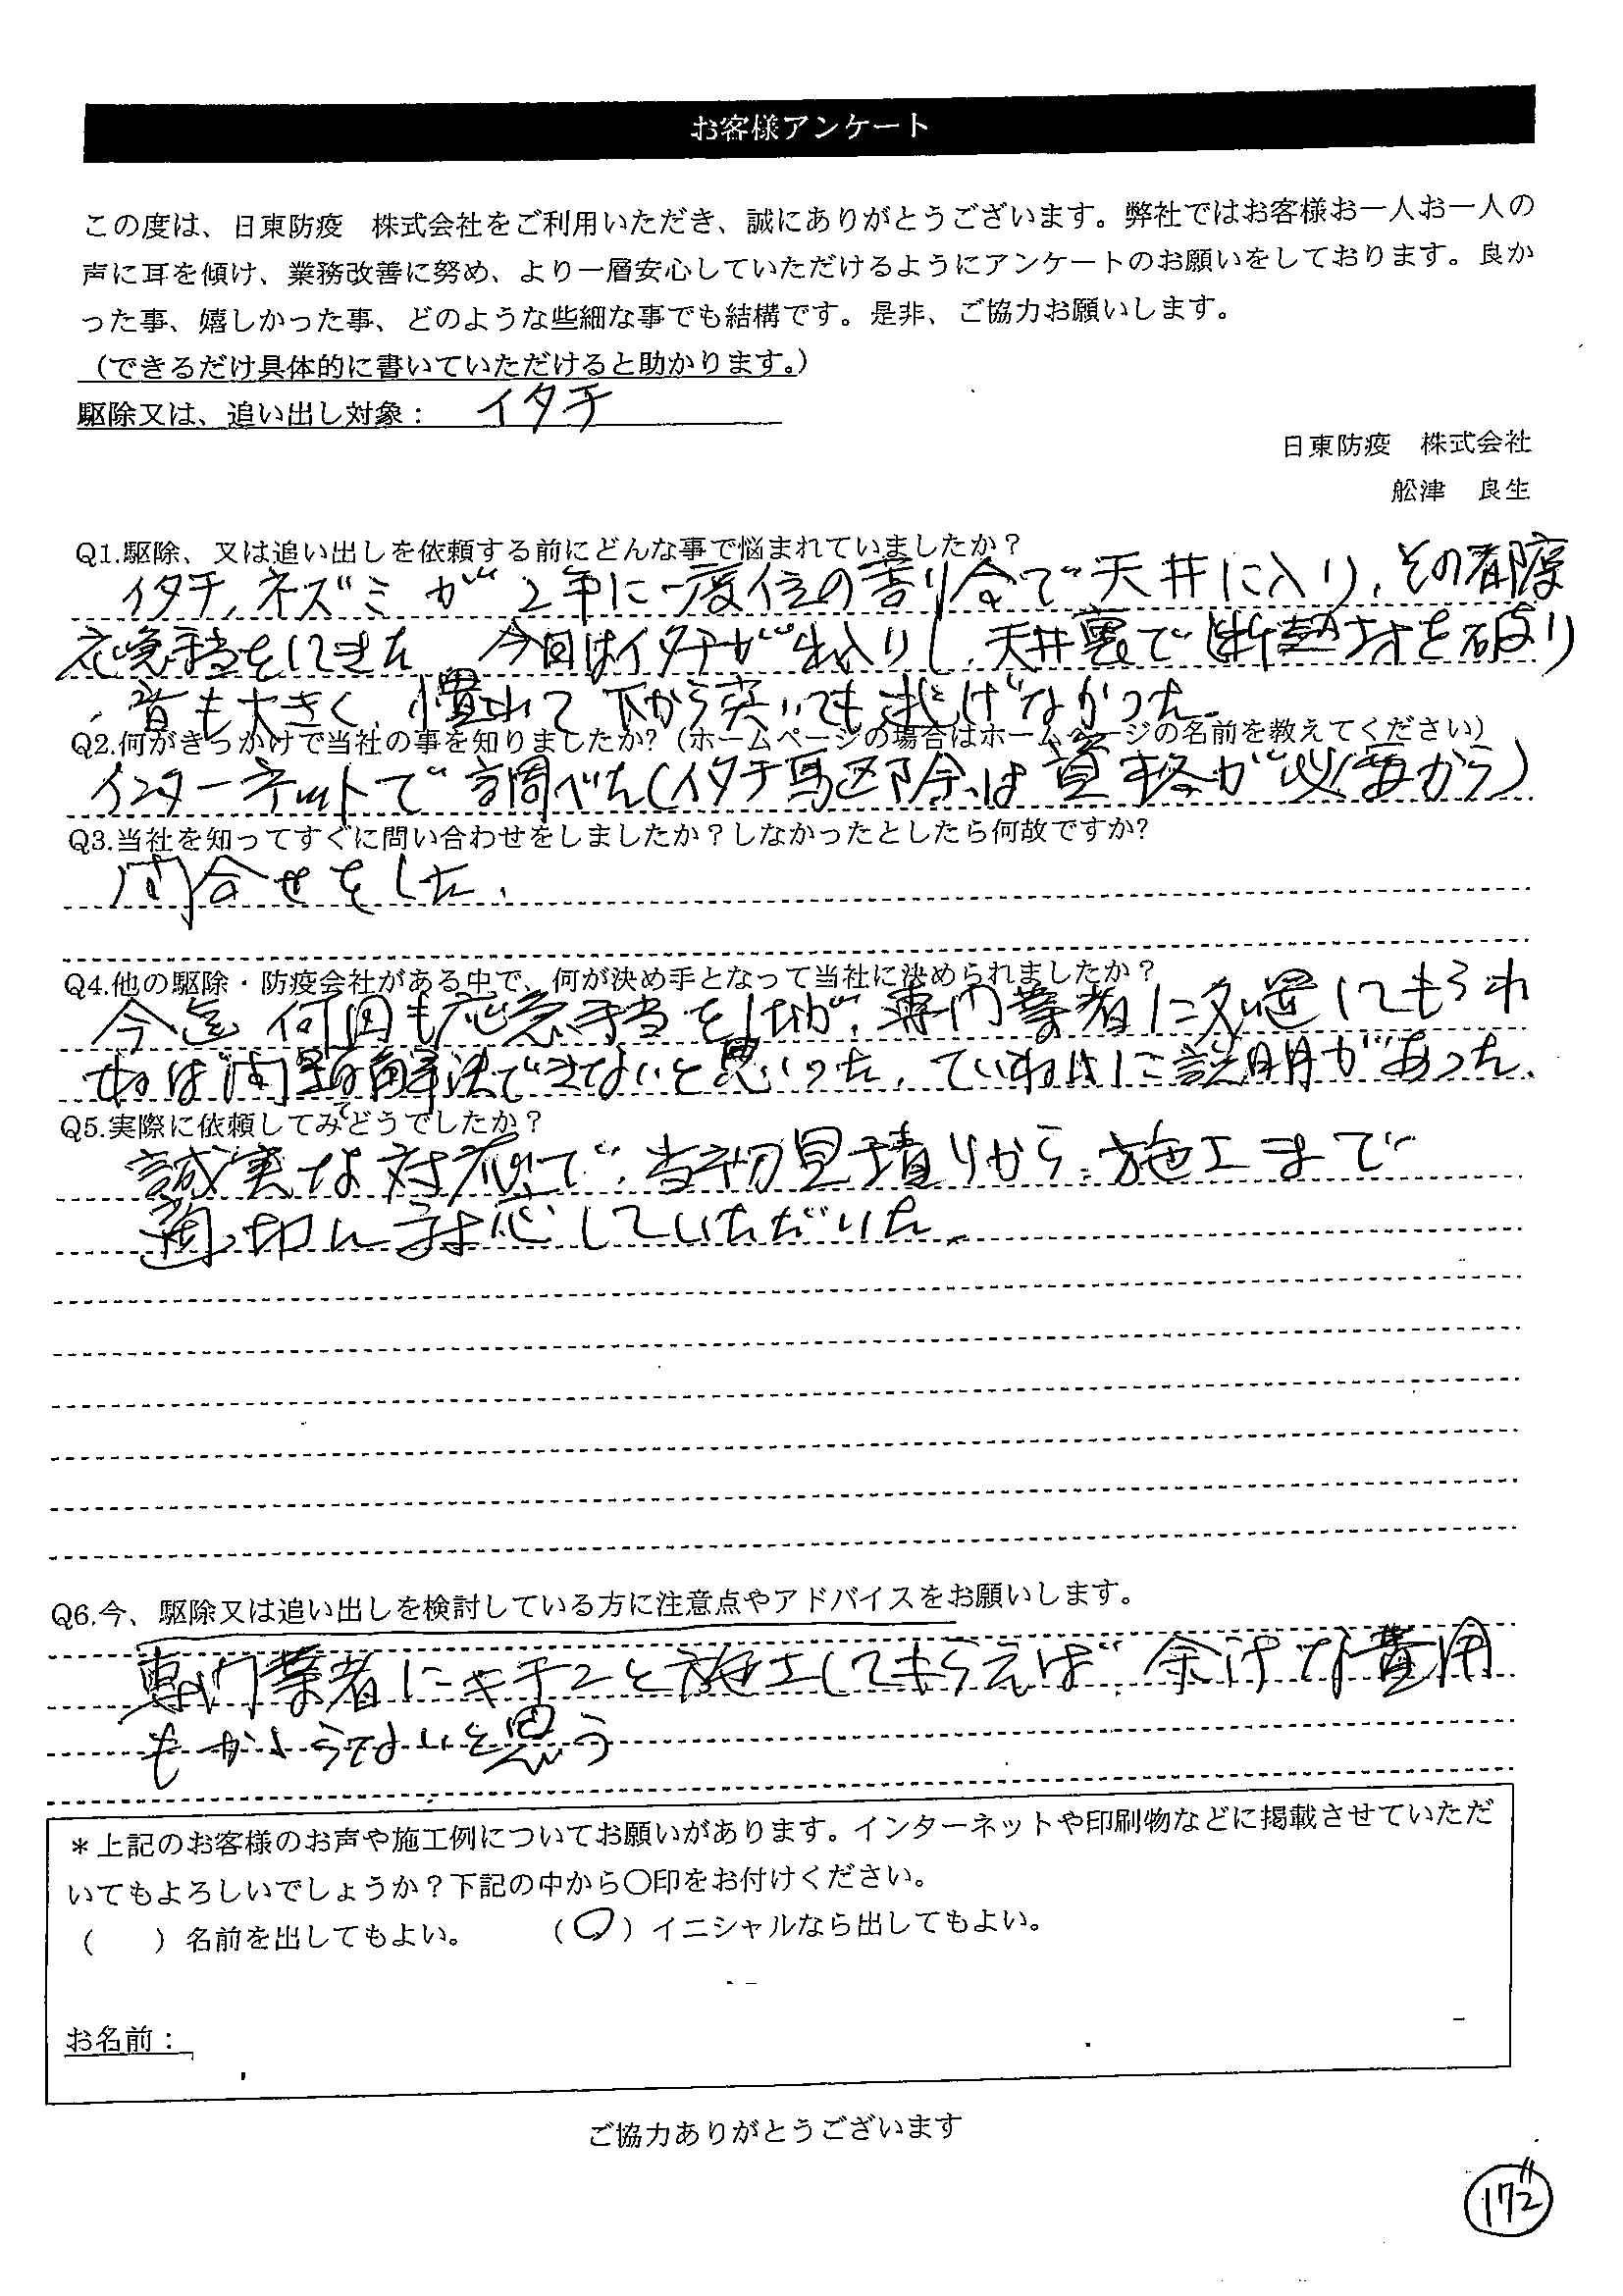 お客様アンケート
この度は、日東防疫　株式会社をご利用いただき、誠にありがとうございます。弊社ではお客様お一人お一人の
声に耳を傾け、業務改善に努め、より一層安心していただけるようにアンケートのお願いをしております。良か
った事、嬉しかった事、どのような些細な事でも結構です。是非、ご協力お願いします。
（できるだけ具体的に書いていただけると助かります。）
駆除又は、追い出し対象： イタチ
日東防疫　株式会社
舩津　良生
Q1.駆除、又は追い出しを依頼する前にどんな事で悩まれていましたか？
イタチ,ネズミが2年に一度位の割合で天井に入り,その都度
応急手当をしてきた 今回はイタチが出入りし,天井裏で断熱材を破り
音も大きく,慣れて下から突いても逃げなかった.
Q2.何がきっかけで当社の事を知りましたか?（ホームページの場合はホームページの名前を教えてください）
インターネットで調べた(イタチ駆除は資格が必要から)
Q3.当社を知ってすぐに問い合わせをしましたか？しなかったとしたら何故ですか?
問合せをした.
Q4.他の駆除・防疫会社がある中で、何が決め手となって当社に決められましたか？
今迄 何回も応急手当をしたが,専門業者に処置してもらわ
ねば問題解決できないと思った,ていねいに説明があった.
Q5.実際に依頼してみてどうでしたか？
誠実な対応で,当初見積りから,施工まで
適切に対応していただいた.
Q6.今、駆除又は追い出しを検討している方に注意点やアドバイスをお願いします。
専門業者にキチンと施工してもらえば,余計な費用
もかからないと思う
＊上記のお客様のお声や施工例についてお願いがあります。インターネットや印刷物などに掲載させていただ
いてもよろしいでしょうか？下記の中から〇印をお付けください。
（　　）名前を出してもよい。　　（〇）イニシャルなら出してもよい。
お名前：
ご協力ありがとうございます
172